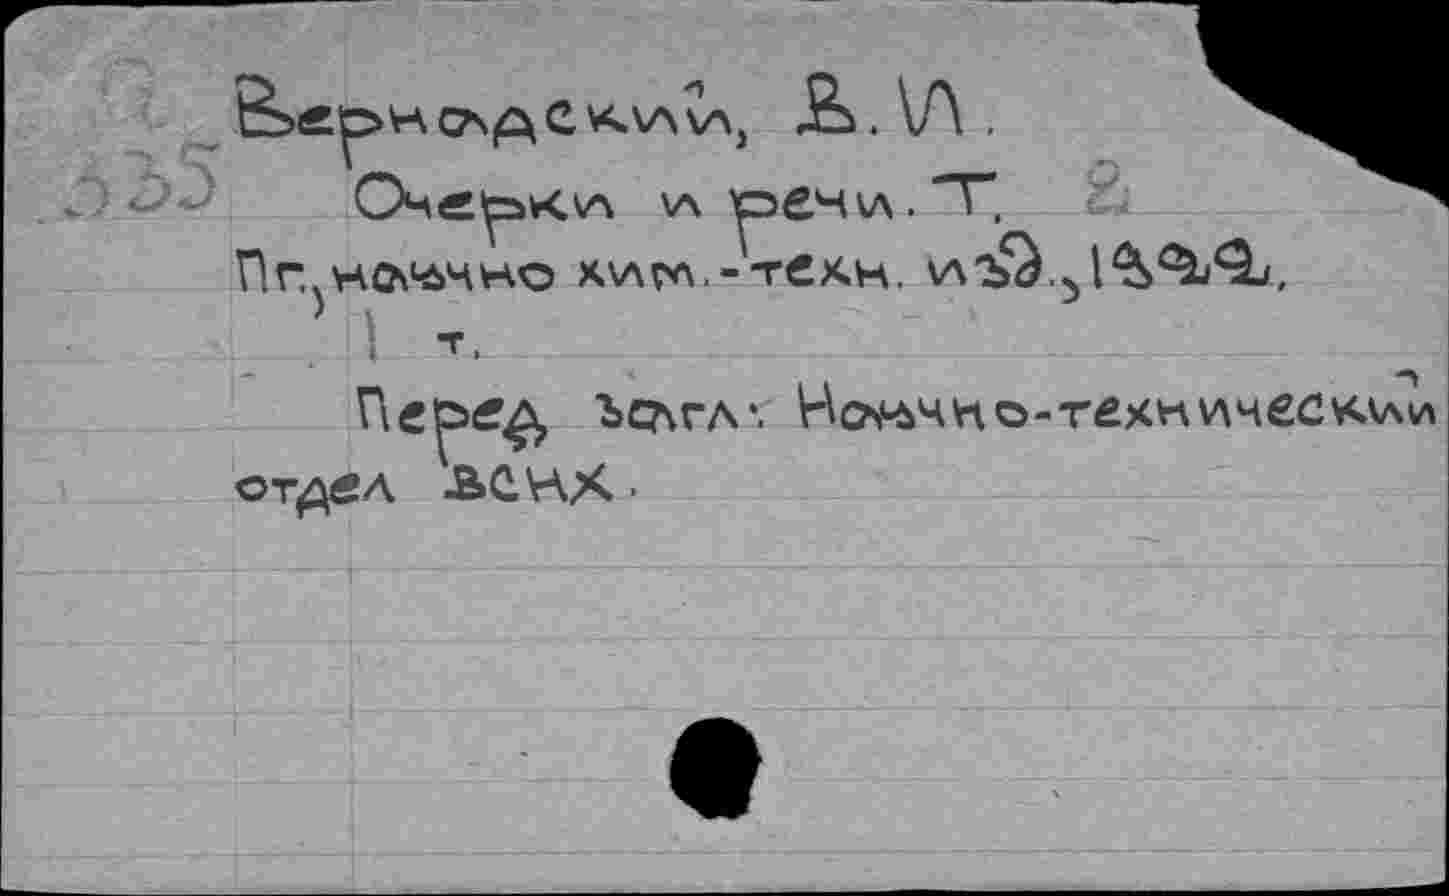 Вернадский, В. И.
Очерки и речи. Т. 2.
Пг., научно хим.-техн. изд., 1922,
1 т.
Перед загл.: Научно-технический
отдел ВСНХ.